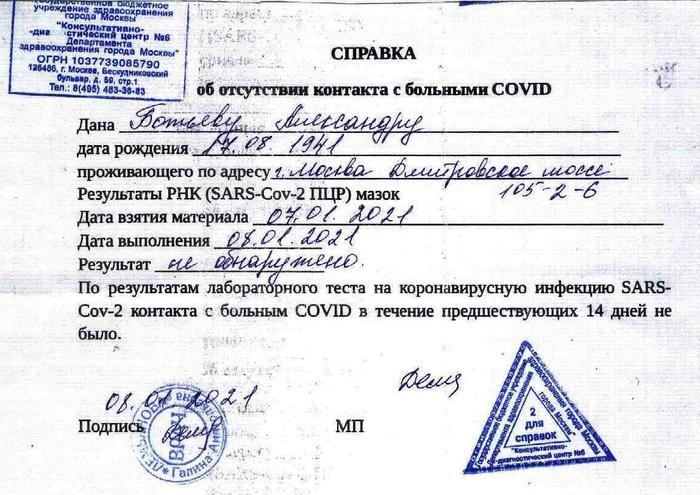 государственное бюджетное
учреждение здравоохранения
города Москвы
"Консультативно-
-диагностический центр №6
Департамента
здравоохранения города Москвы"
ОГРН 1037739085790
125486, г. Москва, Бескудниковский
бульвар, д. 59, стр.1
Тел.: 8(495) 483-36-83
СПРАВКА
об отсутствии контакта с больными COVID
Дана Ботьеву Александру
дата рождения 17.08.1941
проживающего по адресу г. Москва Дмитровское шоссе
105-2-6
Результаты РНК (SARS-Cov-2 ПЦР) мазок
Дата взятия материала 07.01.2021
Дата выполнения 08.01.2021
Результат не обнаружено.
По результатам лабораторного теста на коронавирусную инфекцию SARS-
Cov-2 контакта с больным COVID в течение предшествующих 14 дней не
было.
08.01.2021
Подпись
МП
ВРАЧ
Галина
Государственное бюджетное учреждение
здравоохранения города Москвы
Департамента здравоохранения
города Москвы"
2
для
справок
"Консультативно-
-диагностический центр №6